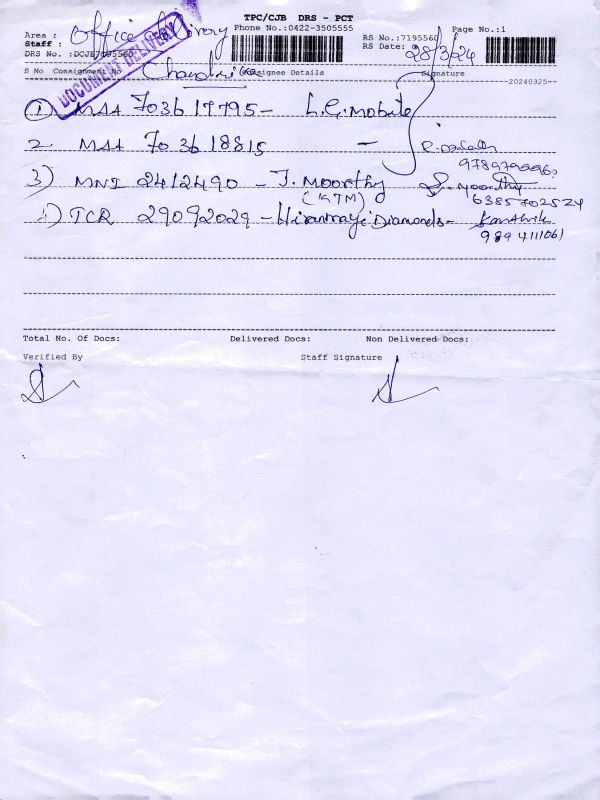 TPC/CJB DRS - PCT
Phone No.:0422-3505555
Page No.:1
Area : Office Delivery
RS No.:7195560
Staff :
RS Date: 28/3/24
DRS No. :DCJB7195560
DOCUMENT DELIVERY
S No Consignment No Consignee Details Signature
Chandrika
20240325
1) MAA 703617795 - L.G. Mobile
2. MAA 703618815 -
3) MNI 2412490 - J. Moorthy J. Moorthy
(KTM) 6385702524
4) TCR 29092029 - Diamonds -
9894111061
Total No. Of Docs: Delivered Docs: Non Delivered Docs:
Verified By Staff Signature